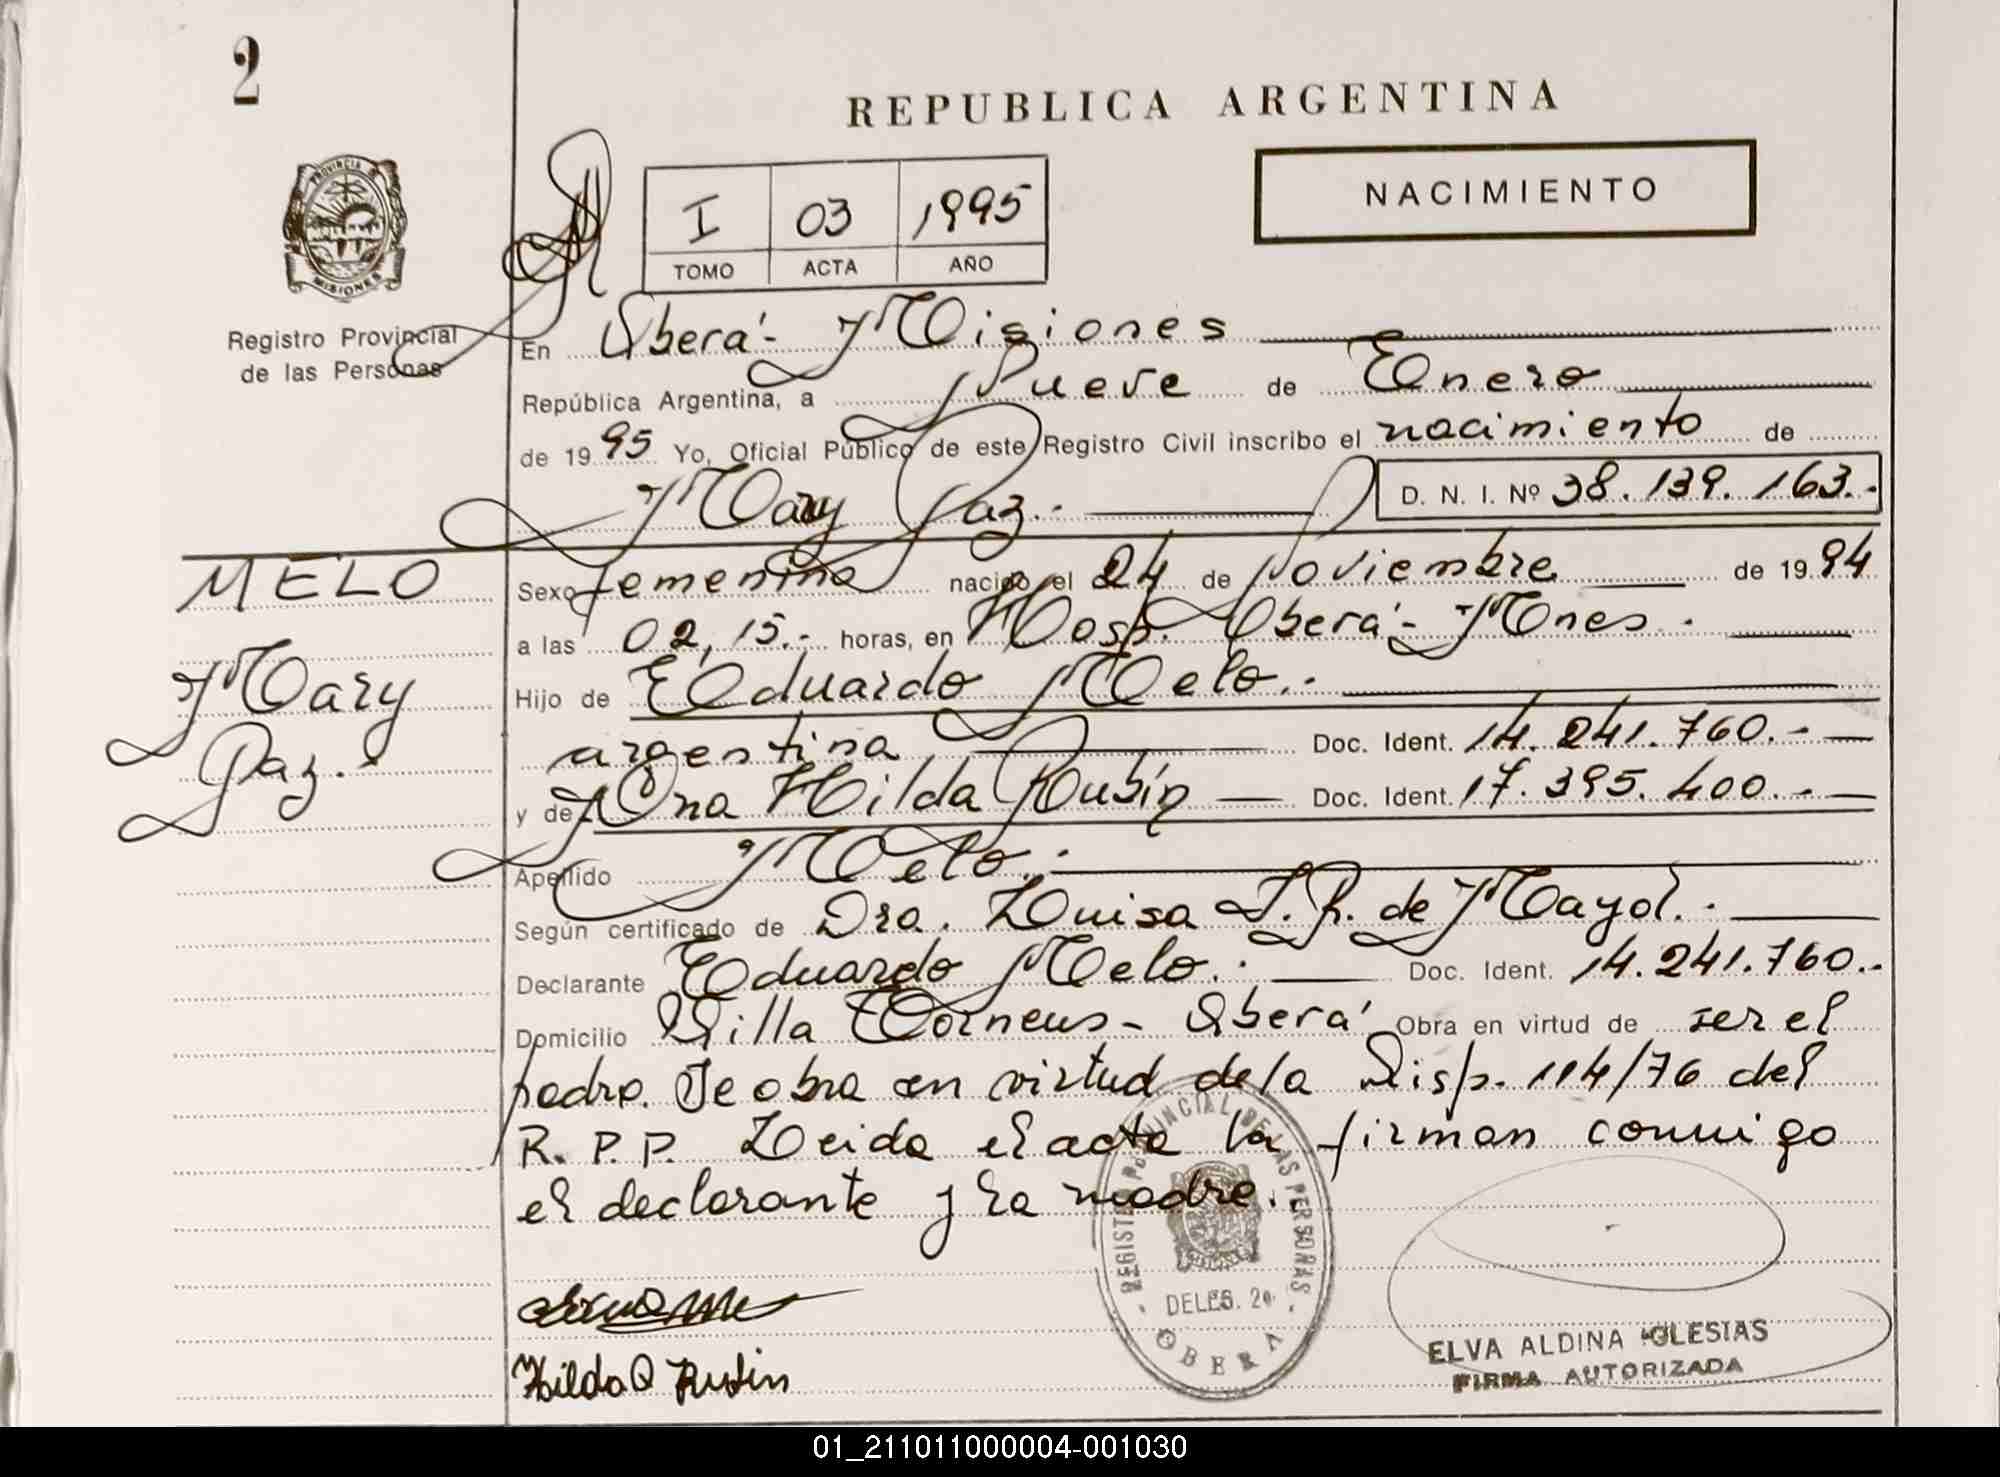 2
REPUBLICA ARGENTINA
NACIMIENTO
PROVINCIA DE
MISIONES
Registro Provincial
de las Personas
I 03 1995
TOMO ACTA AÑO
En Oberá - Misiones
República Argentina, a Nueve de Enero
de 1995 Yo, Oficial Público de este Registro Civil inscribo el nacimiento de
Mary Paz.- D. N. I. Nº 38.139.163.-
MELO
Mary
Paz.-
Sexo femenino nacido el 24 de Noviembre de 1994
a las 02,15.- horas, en Hosp. Oberá - Mnes.
Hijo de Eduardo Melo.-
argentina Doc. Ident. 14.241.760.-
y de Ana Hilda Rubin Doc. Ident. 17.395.400.-
Apellido Melo.-
Según certificado de Dra. Luisa I. R. de Mayol.-
Declarante Eduardo Melo.- Doc. Ident. 14.241.760.-
Domicilio Villa - Oberá Obra en virtud de ser el
padre. Se obra en virtud de la Disp. 114/76 del
R. P. P. Leida el acta la firman conmigo
el declarante y la madre.
REGISTRO PROVINCIAL DE LAS PERSONAS
DELEG.
OBERA
Hilda Rubin
ELVA ALDINA IGLESIAS
FIRMA AUTORIZADA
01_211011000004-001030